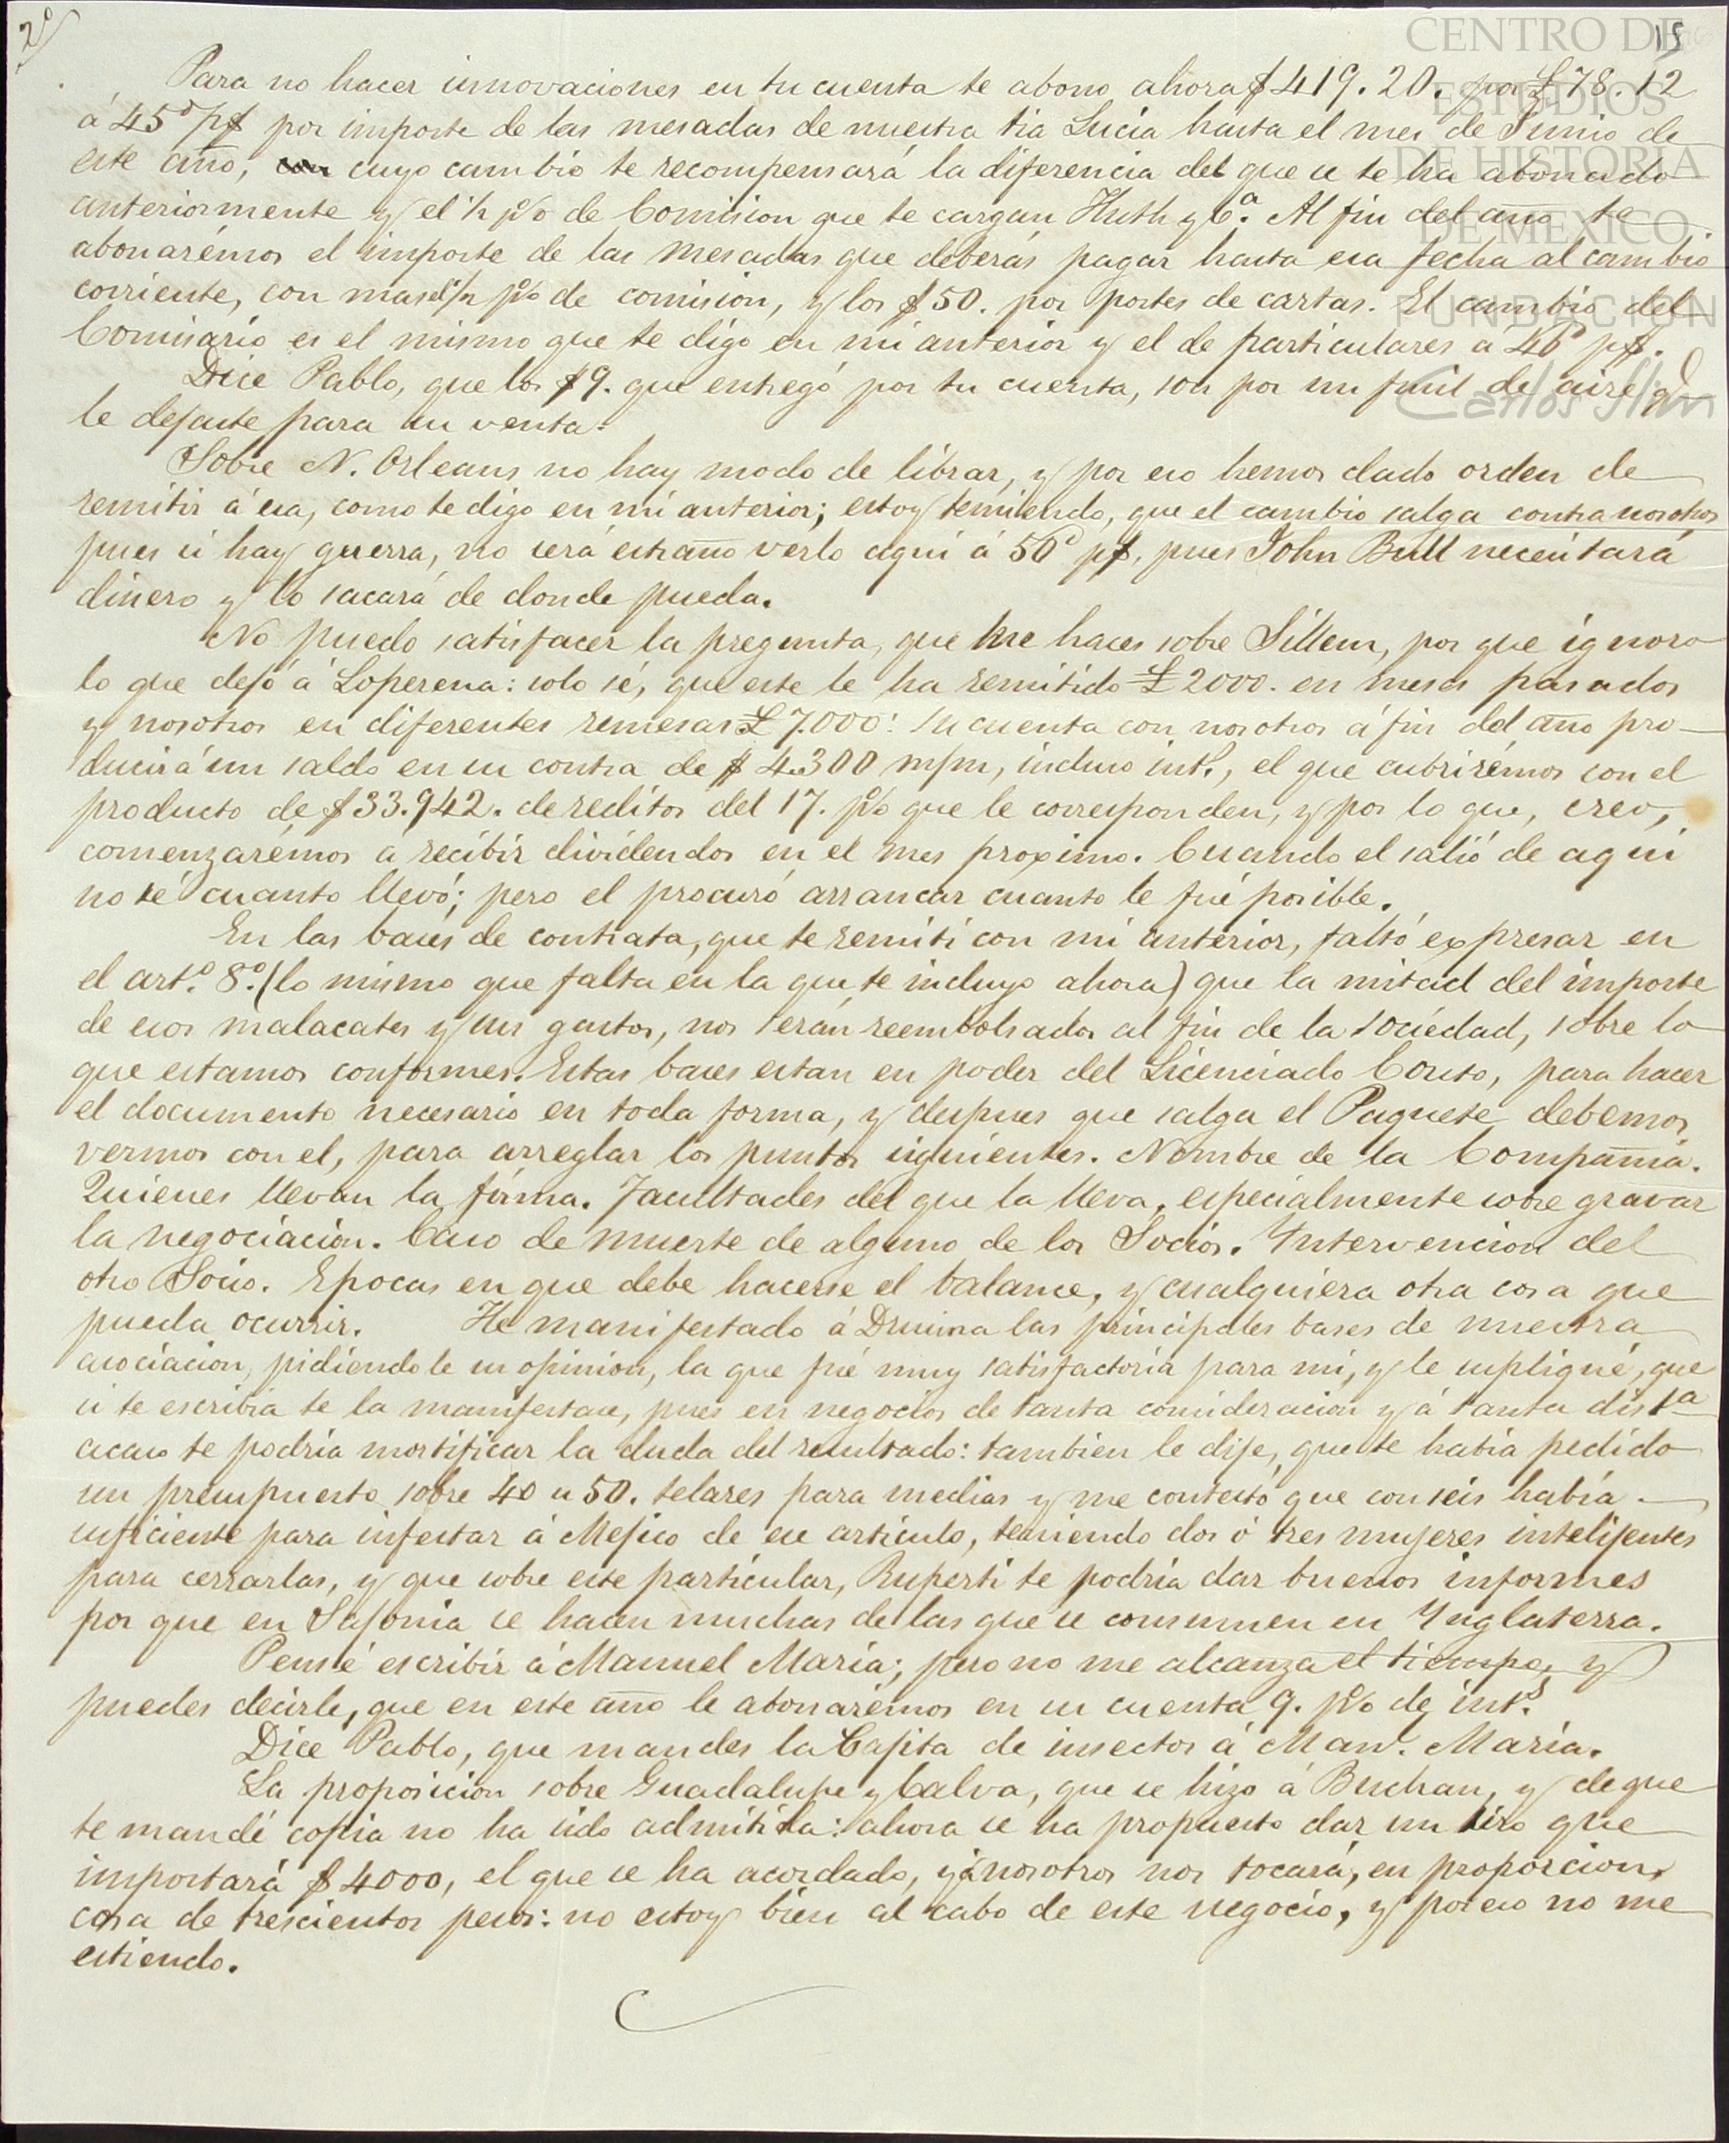 2º
15
CENTRO DE
ESTUDIOS
DE HISTORIA
DE MEXICO
FUNDACION
Carlos Slim
Para no hacer innovaciones en tu cuenta te abono ahora $419.20. por £78.12
á 45ᵈ p$ por importe de las mesadas de nuestra tia Lucia hasta el mes de Junio de
este año, cuyo cambio te recompensará la diferencia del que se te ha abonado
anteriormente y el ½ p% de Comision que te cargan Huth y Cª. Al fin del año te
abonarémos el importe de las mesadas que deberás pagar hasta esa fecha al cambio
corriente, con mas el ½ p% de comision, y los $50. por portes de cartas. El cambio del
Comisario es el mismo que te digo en mi anterior y el de particulares a 46ᵈ p$.
Dice Pablo, que los $9. que entregó por tu cuenta, son por un fusil de aire qᵉ
le dejaste para su venta.
Sobre N. Orleans no hay modo de librar, y por eso hemos dado orden de
remitir á esa, como te digo en mi anterior; estoy temiendo, que el cambio salga contra nosotros
pues si hay guerra, no será estraño verlo aqui á 50ᵈ p$. pues John Bull necesitará
dinero y lo sacará de donde pueda.
No puedo satisfacer la pregunta, que me haces sobre Sillem, por que ignoro
lo que dejó á Loperena: solo sé, que este le ha remitido £2000. en meses pasados
y nosotros en diferentes remesas £7.000: su cuenta con nosotros á fin del año pro-
ducirá un saldo en su contra de $4.300 m/m, incluso intˢ., el que cubrirémos con el
producto de $33.942. de reditos del 17. p% que le corresponden, y por lo que, creo,
comenzarémos a recibir dividendos en el mes proximo. Cuando el salió de aqui
no sé cuanto llevó; pero el procuró arrancar cuanto le fué posible.
En las bases de contrata, que te remiti con mi anterior, faltó expresar en
el artº. 8º. (lo mismo que falta en la que te incluyo ahora) que la mitad del importe
de esos malacates y sus gastos, nos serán reembolsados al fin de la sociedad, sobre lo
que estamos conformes. Estas bases estan en poder del Licenciado Couto, para hacer
el documento necesario en toda forma, y despues que salga el Paquete debemos
vernos con el, para arreglar los puntos siguientes. Nombre de la Compañia.
Quienes llevan la firma. Facultades del que la lleva, especialmente sobre gravar
la negociacion. Caso de muerte de alguno de los Socios. Intervencion del
otro Socio. Epocas en que debe hacerse el balance, y cualquiera otra cosa que
pueda ocurrir. He manifestado á Drusina las principales bases de nuestra
asociacion, pidiendole su opinion, la que fué muy satisfactoria para mi, y le supliqué, que
si te escribia te la manifestase, pues en negocios de tanta consideracion y á tanta distª
acaso te podria mortificar la duda del resultado: tambien le dije, que te habia pedido
un presupuesto sobre 40 u 50. telares para medias y me contestó que con seis habia
suficiente para infestar á Mejico de ese articulo, teniendo dos ó tres mujeres intelijentes
para cerrarlas, y que sobre este particular, Ruperti te podria dar buenos informes
por que en Sajonia se hacen muchas de las que se consumen en Inglaterra.
Pensé escribir á Manuel Maria; pero no me alcanza el tiempo, y
puedes decirle, que en este año le abonarémos en su cuenta 9. p% de intˢ.
Dice Pablo, que mandes la Cajita de insectos á Manˡ. Maria.
La proposicion sobre Guadalupe y Calvo, que se hizo á Buchan, y de que
te mandé copia no ha sido admitida: ahora se ha propuesto dar un tiro que
importará $4000, el que se ha acordado, y á nosotros nos tocará, en proporcion,
cosa de trescientos pesos: no estoy bien al cabo de este negocio, y por eso no me
estiendo.